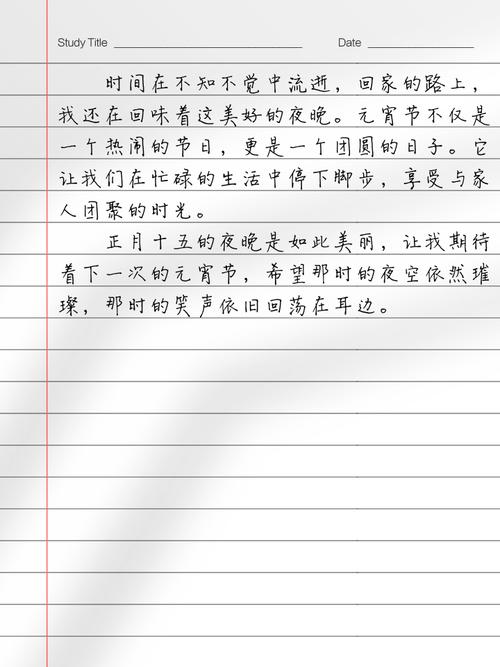 Study Title
Date
时间在不知不觉中流逝，回家的路上，
我还在回味着这美好的夜晚。元宵节不仅是
一个热闹的节日，更是一个团圆的日子。它
让我们在忙碌的生活中停下脚步，享受与家
人团聚的时光。
正月十五的夜晚是如此美丽，让我期待
着下一次的元宵节，希望那时的夜空依然璀
璨，那时的笑声依旧回荡在耳边。